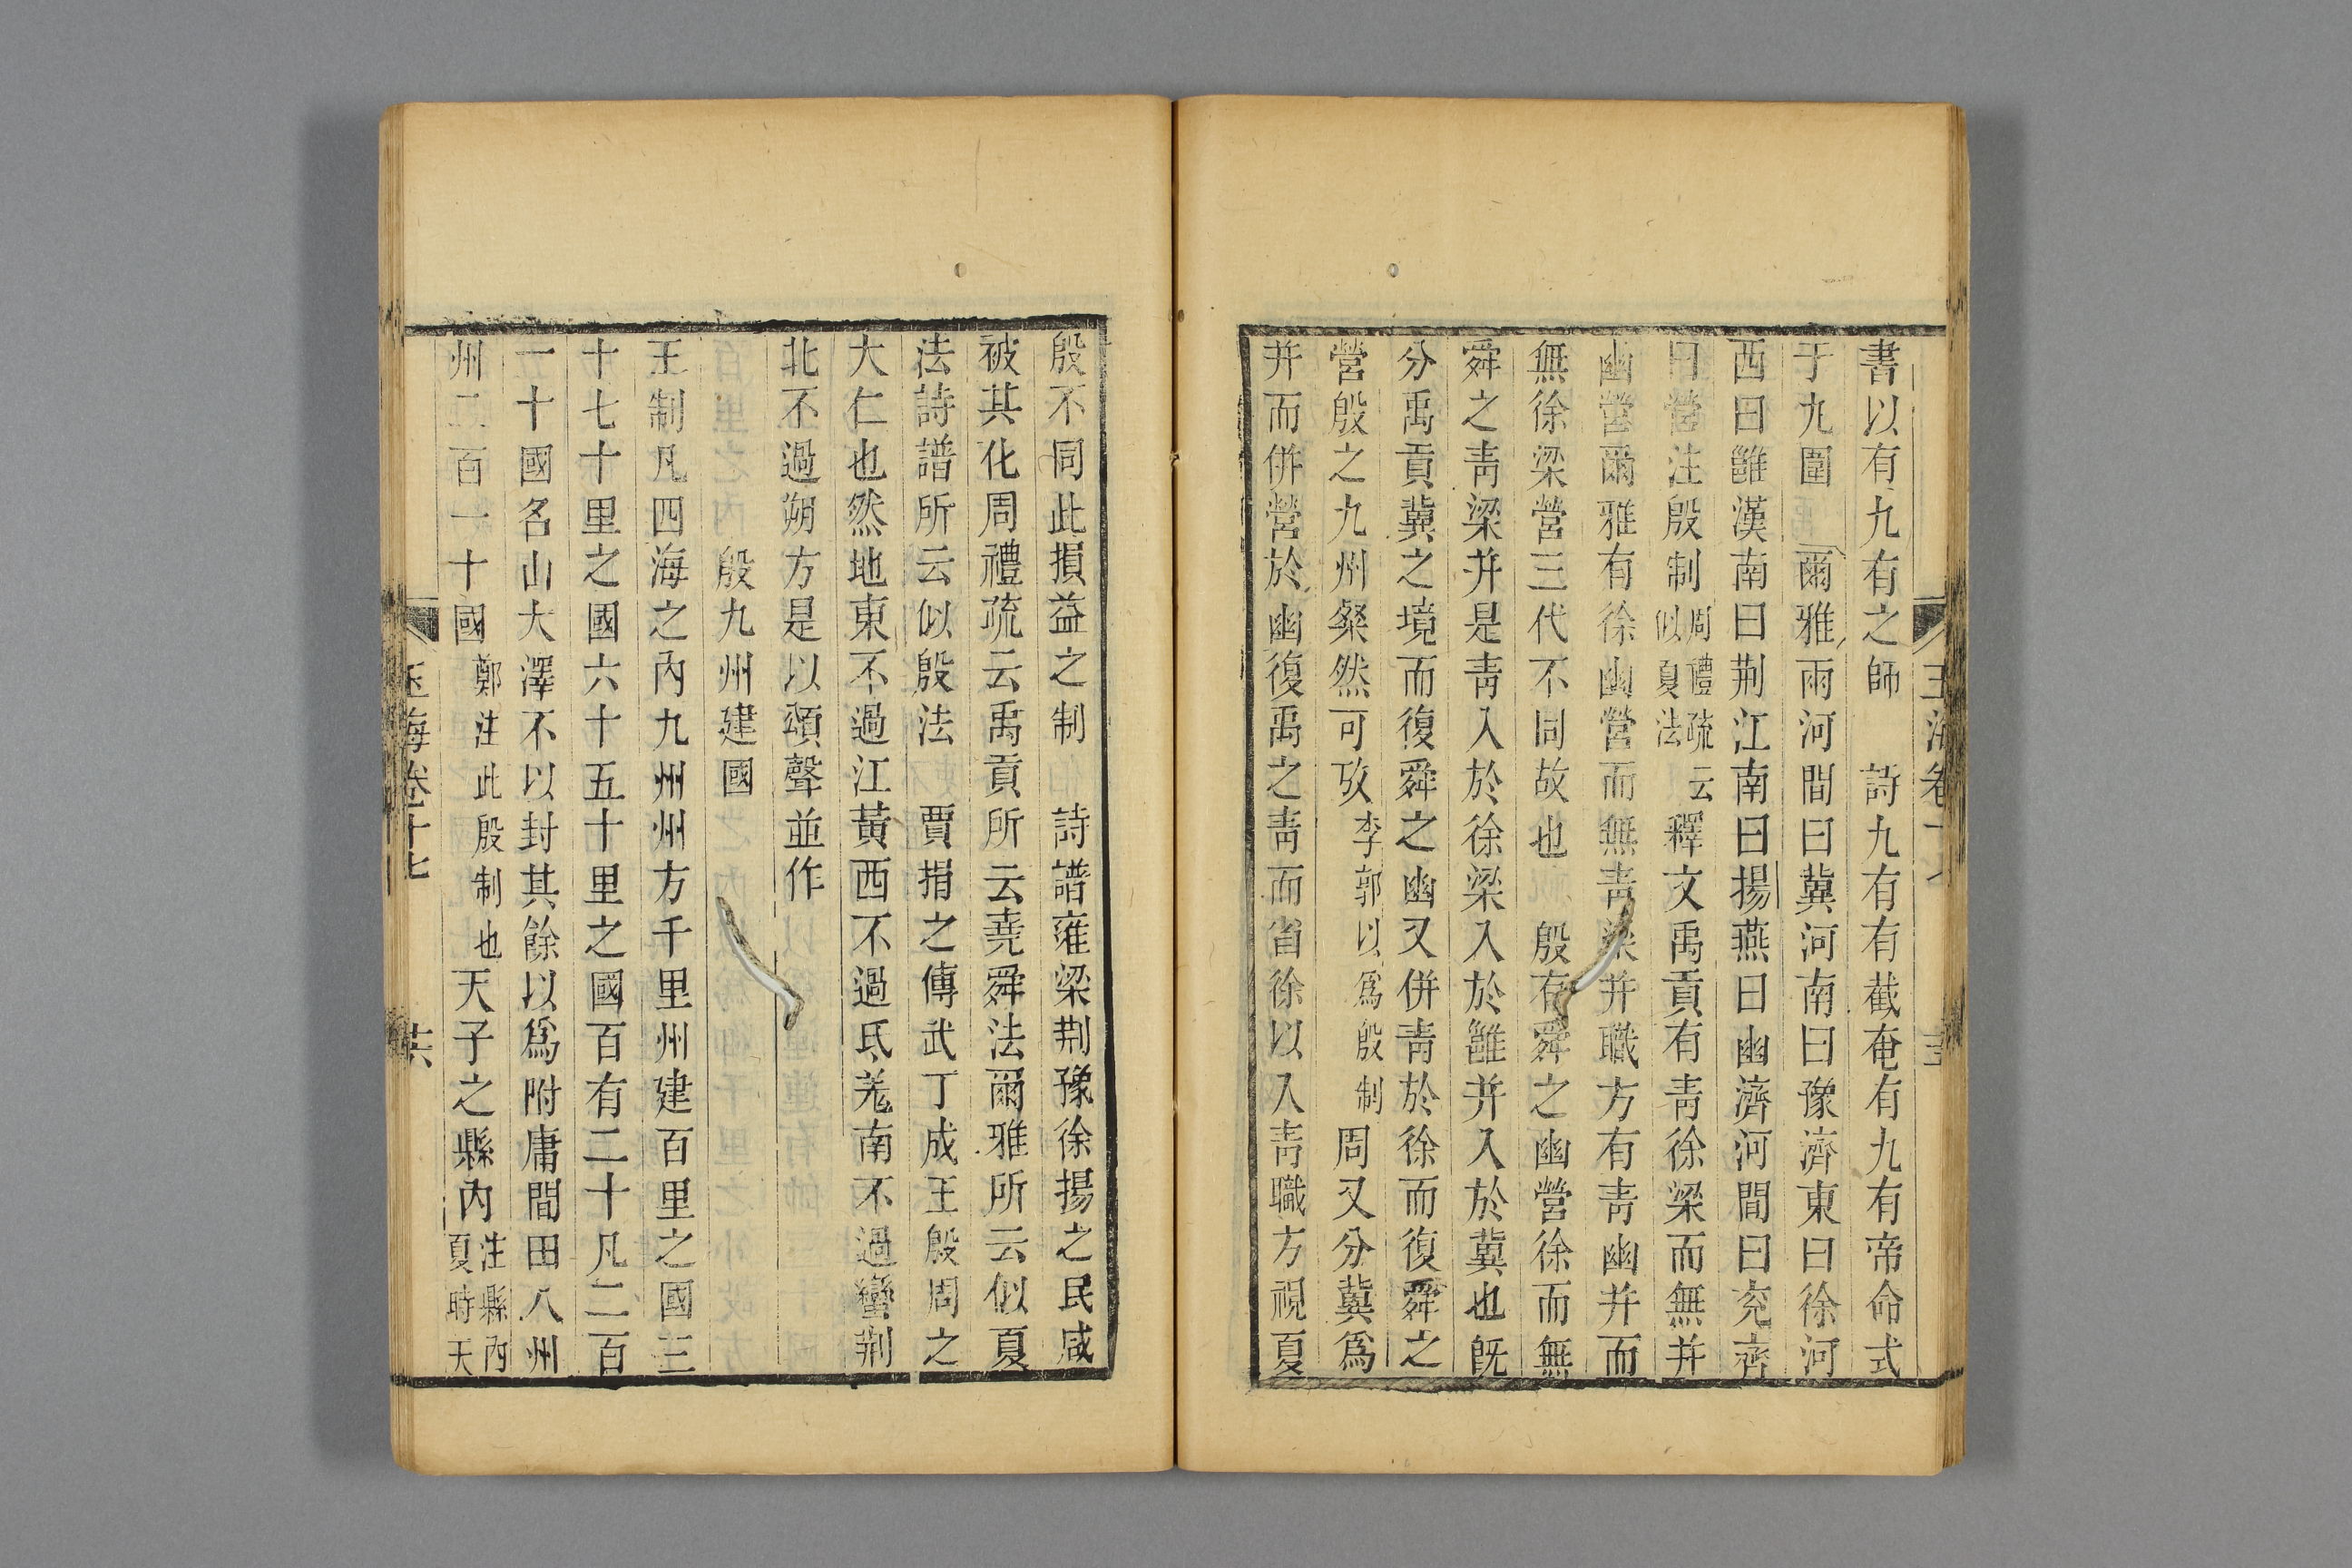 書以有九有之師　詩九有有截奄有九有帝命式
于九圍　爾雅兩河間曰冀河南曰豫濟東曰徐河
西曰雝漢南曰荆江南曰揚燕曰幽濟河間曰兖齊
曰營注殷制周禮疏云似夏法釋文禹貢有青徐梁而無并
幽營爾雅有徐幽營而無青梁并職方有青幽并而
無徐梁營三代不同故也　殷有舜之幽營徐而無
舜之青梁并是青入於徐梁入於雝并入於冀也旣
分禹貢冀之境而復舜之幽又併青於徐而復舜之
營殷之九州粲然可攷李郭以爲殷制周又分冀爲
并而併營於幽復禹之青而省徐以入青職方視夏
殷不同此損益之制　詩譜雍梁荆豫徐揚之民咸
被其化周禮疏云禹貢所云堯舜法爾雅所云似夏
法詩譜所云似殷法　賈捐之傳武丁成王殷周之
大仁也然地東不過江黃西不過氐羌南不過蠻荆
北不過朔方是以頌聲並作
殷九州建國
王制凡四海之內九州州方千里州建百里之國三
十七十里之國六十五十里之國百有二十凡二百
一十國名山大澤不以封其餘以爲附庸間田八州
州二百一十國鄭注此殷制也天子之縣內注縣內夏時天
玉海卷十七